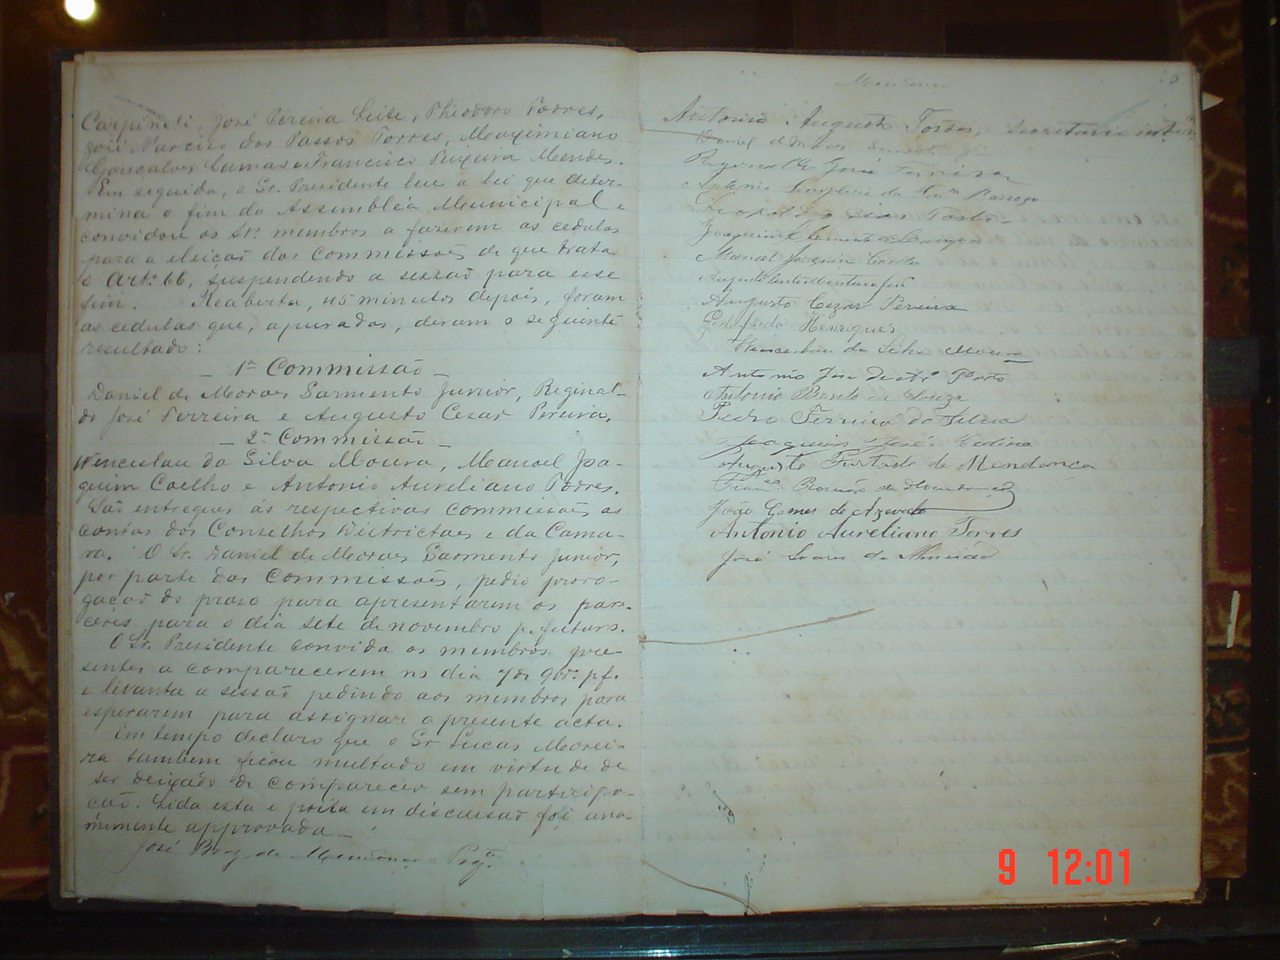 Carpineti, José Pereira Leite, Theodoro Torres,
José Narcizo dos Passos Torres, Maximiano
Gonçalves Lamas e Francisco Teixeira Mendes.
Em seguida, o Sr. Presidente leu a lei que deter-
mina o fim da Assembléa Municipal e
convidou os Srs. membros a fazerem as cedulas
para a eleição das Commissões de que trata
o Artº 66, suspendendo a sessão para esse
fim. Reaberta, 45 minutos depois, foram
as cedulas que, apuradas, deram o seguinte
resultado:
1ª Commissão
Daniel de Moraes Sarmento Junior, Reginal-
do José Ferreira e Augusto Cesar Pereira.
2ª Commissão
Wencislau da Silva Moura, Manoel Joa-
quim Coelho e Antonio Aureliano Torres.
São entregues ás respectivas commissões as
contas dos Conselhos Districtaes e da Cama-
ra. O Sr. Daniel de Moraes Sarmento Junior,
por parte das Commissões, pedio proro-
gação do praso para apresentarem os pare-
ceres para o dia sete de novembro p. futuro.
O Sr. Presidente convida os membros pre-
sentes a comparecerem no dia 7 de 9bro pf.
e levanta a sessão pedindo aos membros para
esperarem para assignar a presente acta.
Em tempo declaro que o Sr Lucas Morei-
ra tambem ficou multado em virtude de
ter deixado de comparecer sem participa-
ção. Lida esta e posta em discussão foi una-
nimemente approvada
José Braz de Mendonça
Mendonça
Antonio Augusto Torres, Secretario
Daniel de Moraes Sarmento
Reginaldo José Ferreira
Antonio
Joaquim Clemente de
Manoel Joaquim Coelho
Augusto
Augusto Cezar Pereira
Godofredo Henriques
Wencesláu da Silva Moura
Antonio José de Porto
Antonio Bento de Souza
Pedro Ferreira da Silva
Joaquim José
Augusto Furtado de Mendonça
Romão de Mendonça
João Gomes de Azevedo
Antonio Aureliano Torres
José Soares de Almeida
9 12:01